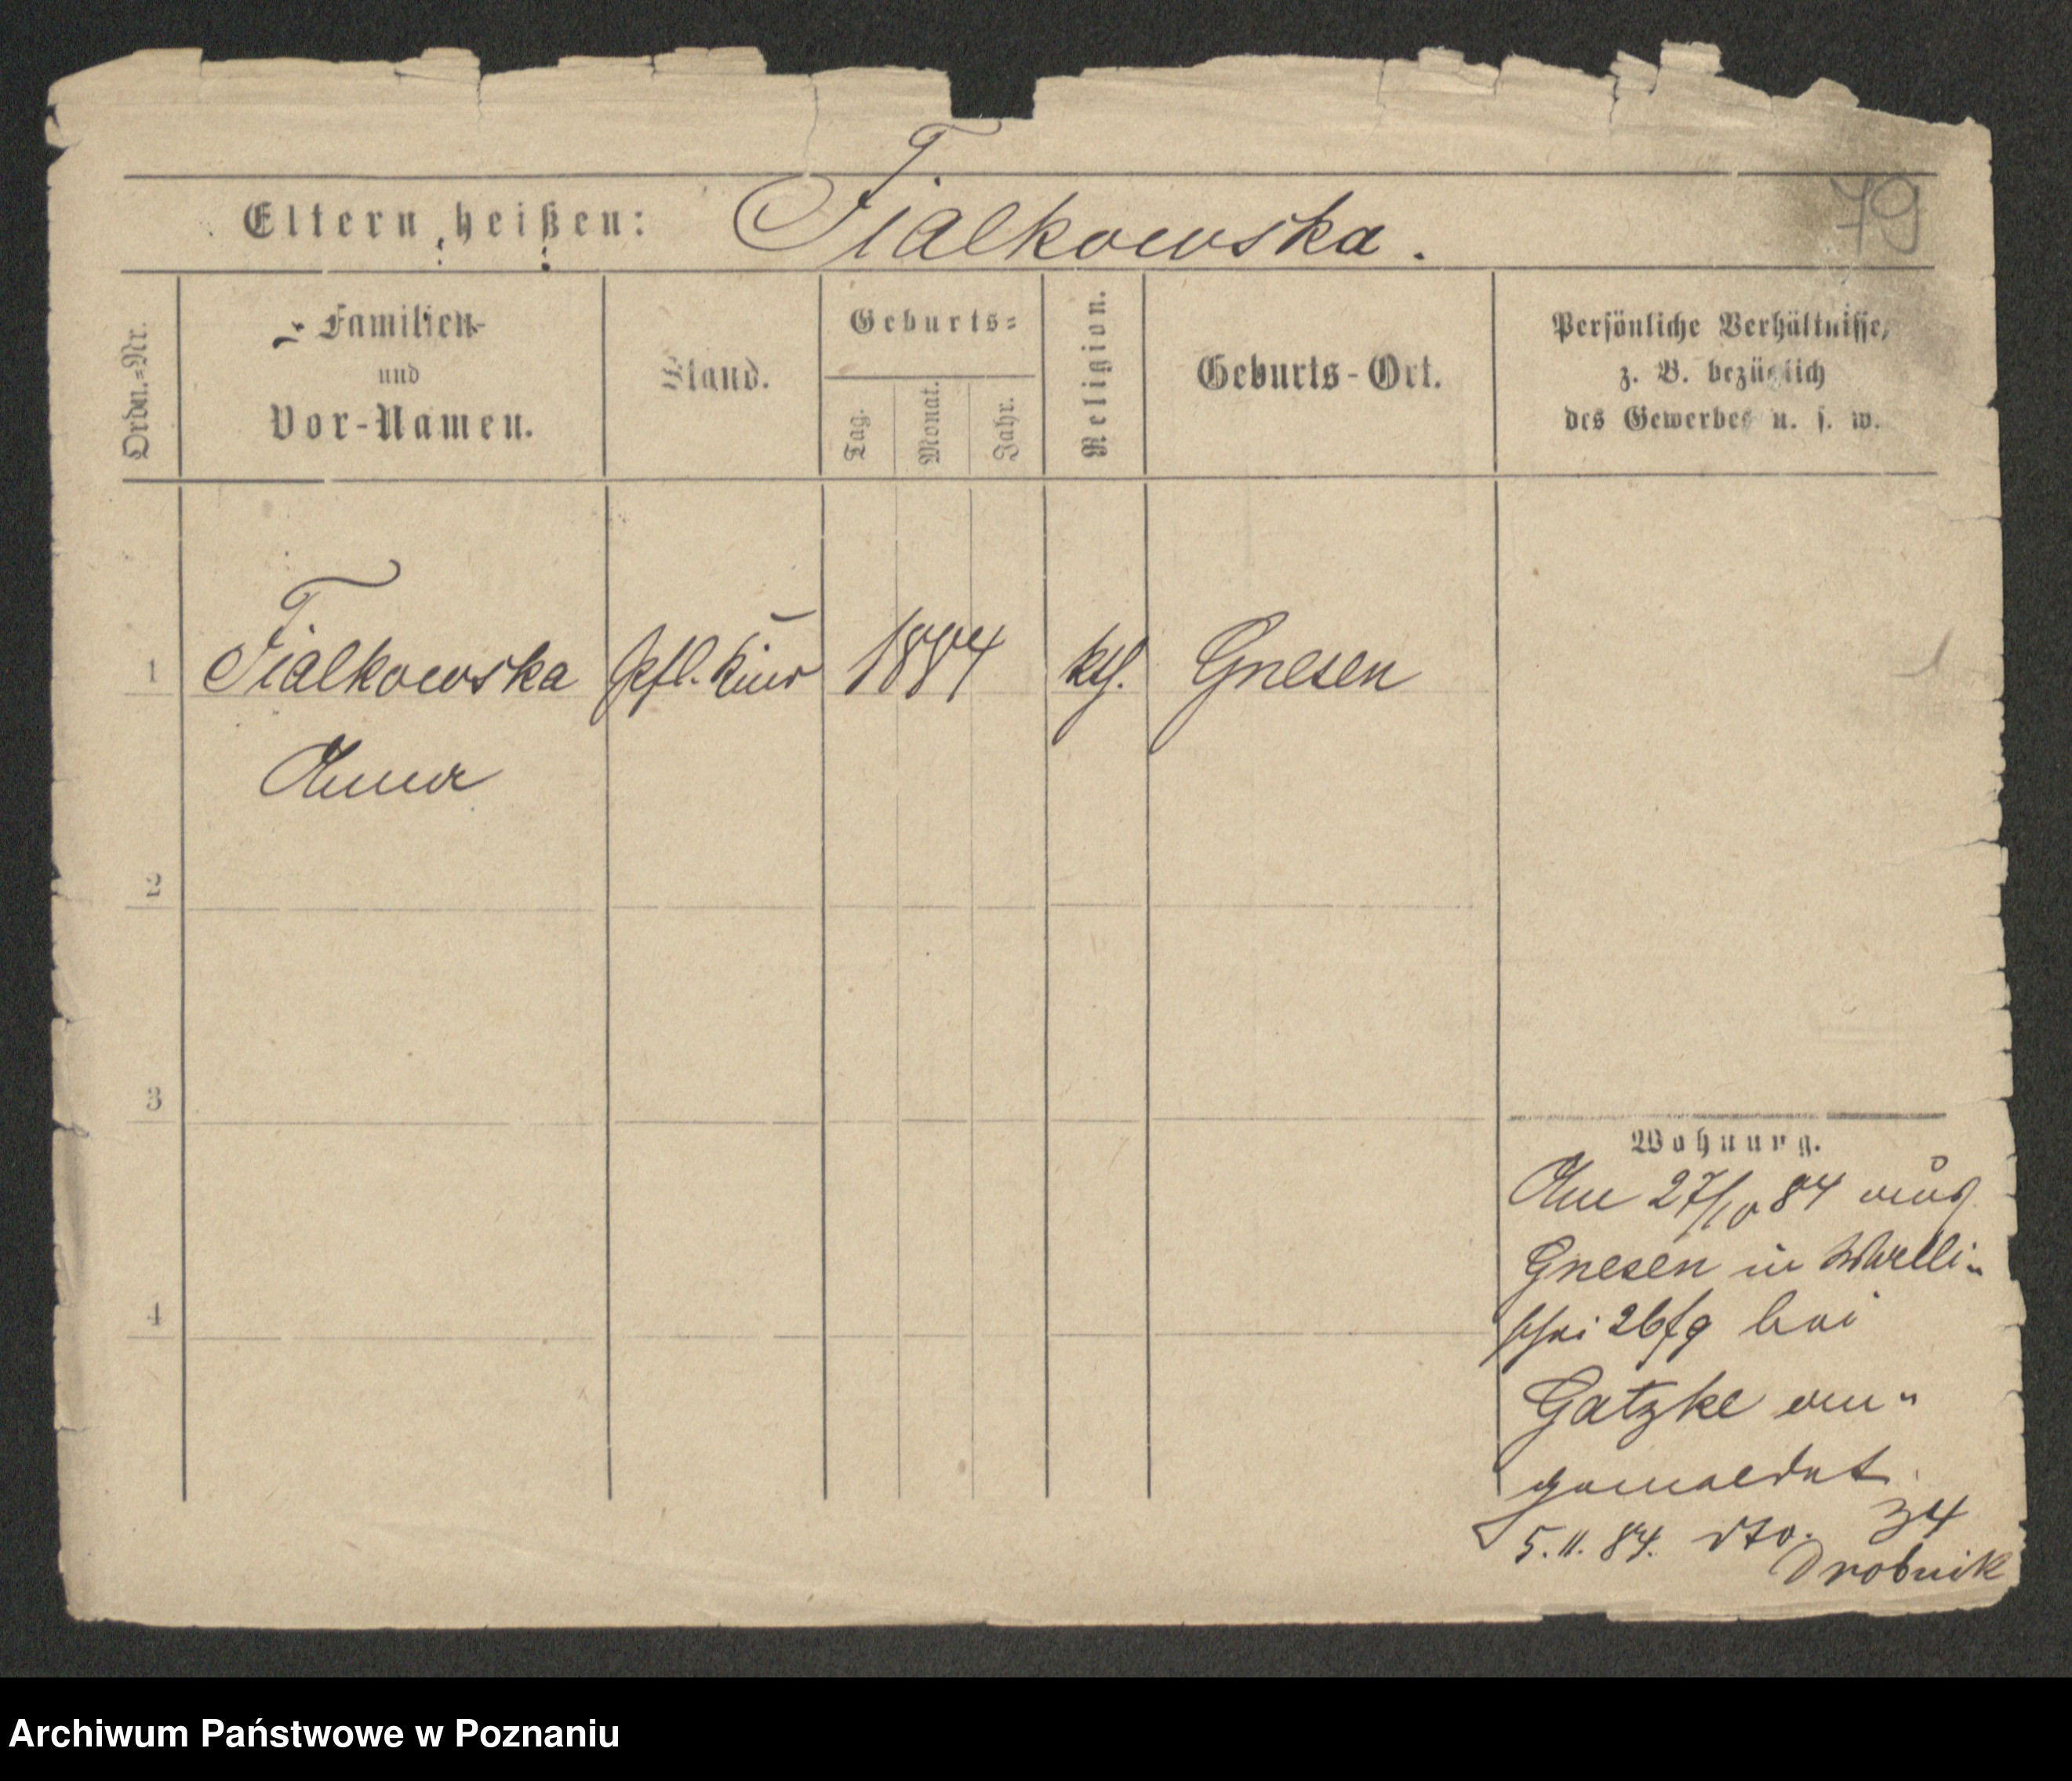 79
Eltern heißen: Fialkowska.
Ordn.=Nr.
Familien-
und
Vor-Namen.
Stand.
Geburts=
Tag.
Monat.
Jahr.
Religion.
Geburts-Ort.
Persönliche Verhältnisse,
z. B. bezüglich
des Gewerbes u. s. w.
1 Fialkowska Pfl. Kind 1884 kth. Gnesen
Anna
2
3
4
Wohnung.
Am 27/10 84 aus
Gnesen in Walli-
schei bei
Gatzke an-
gemeldet.
5.11.84. dto. 34
Drobnik
Archiwum Państwowe w Poznaniu